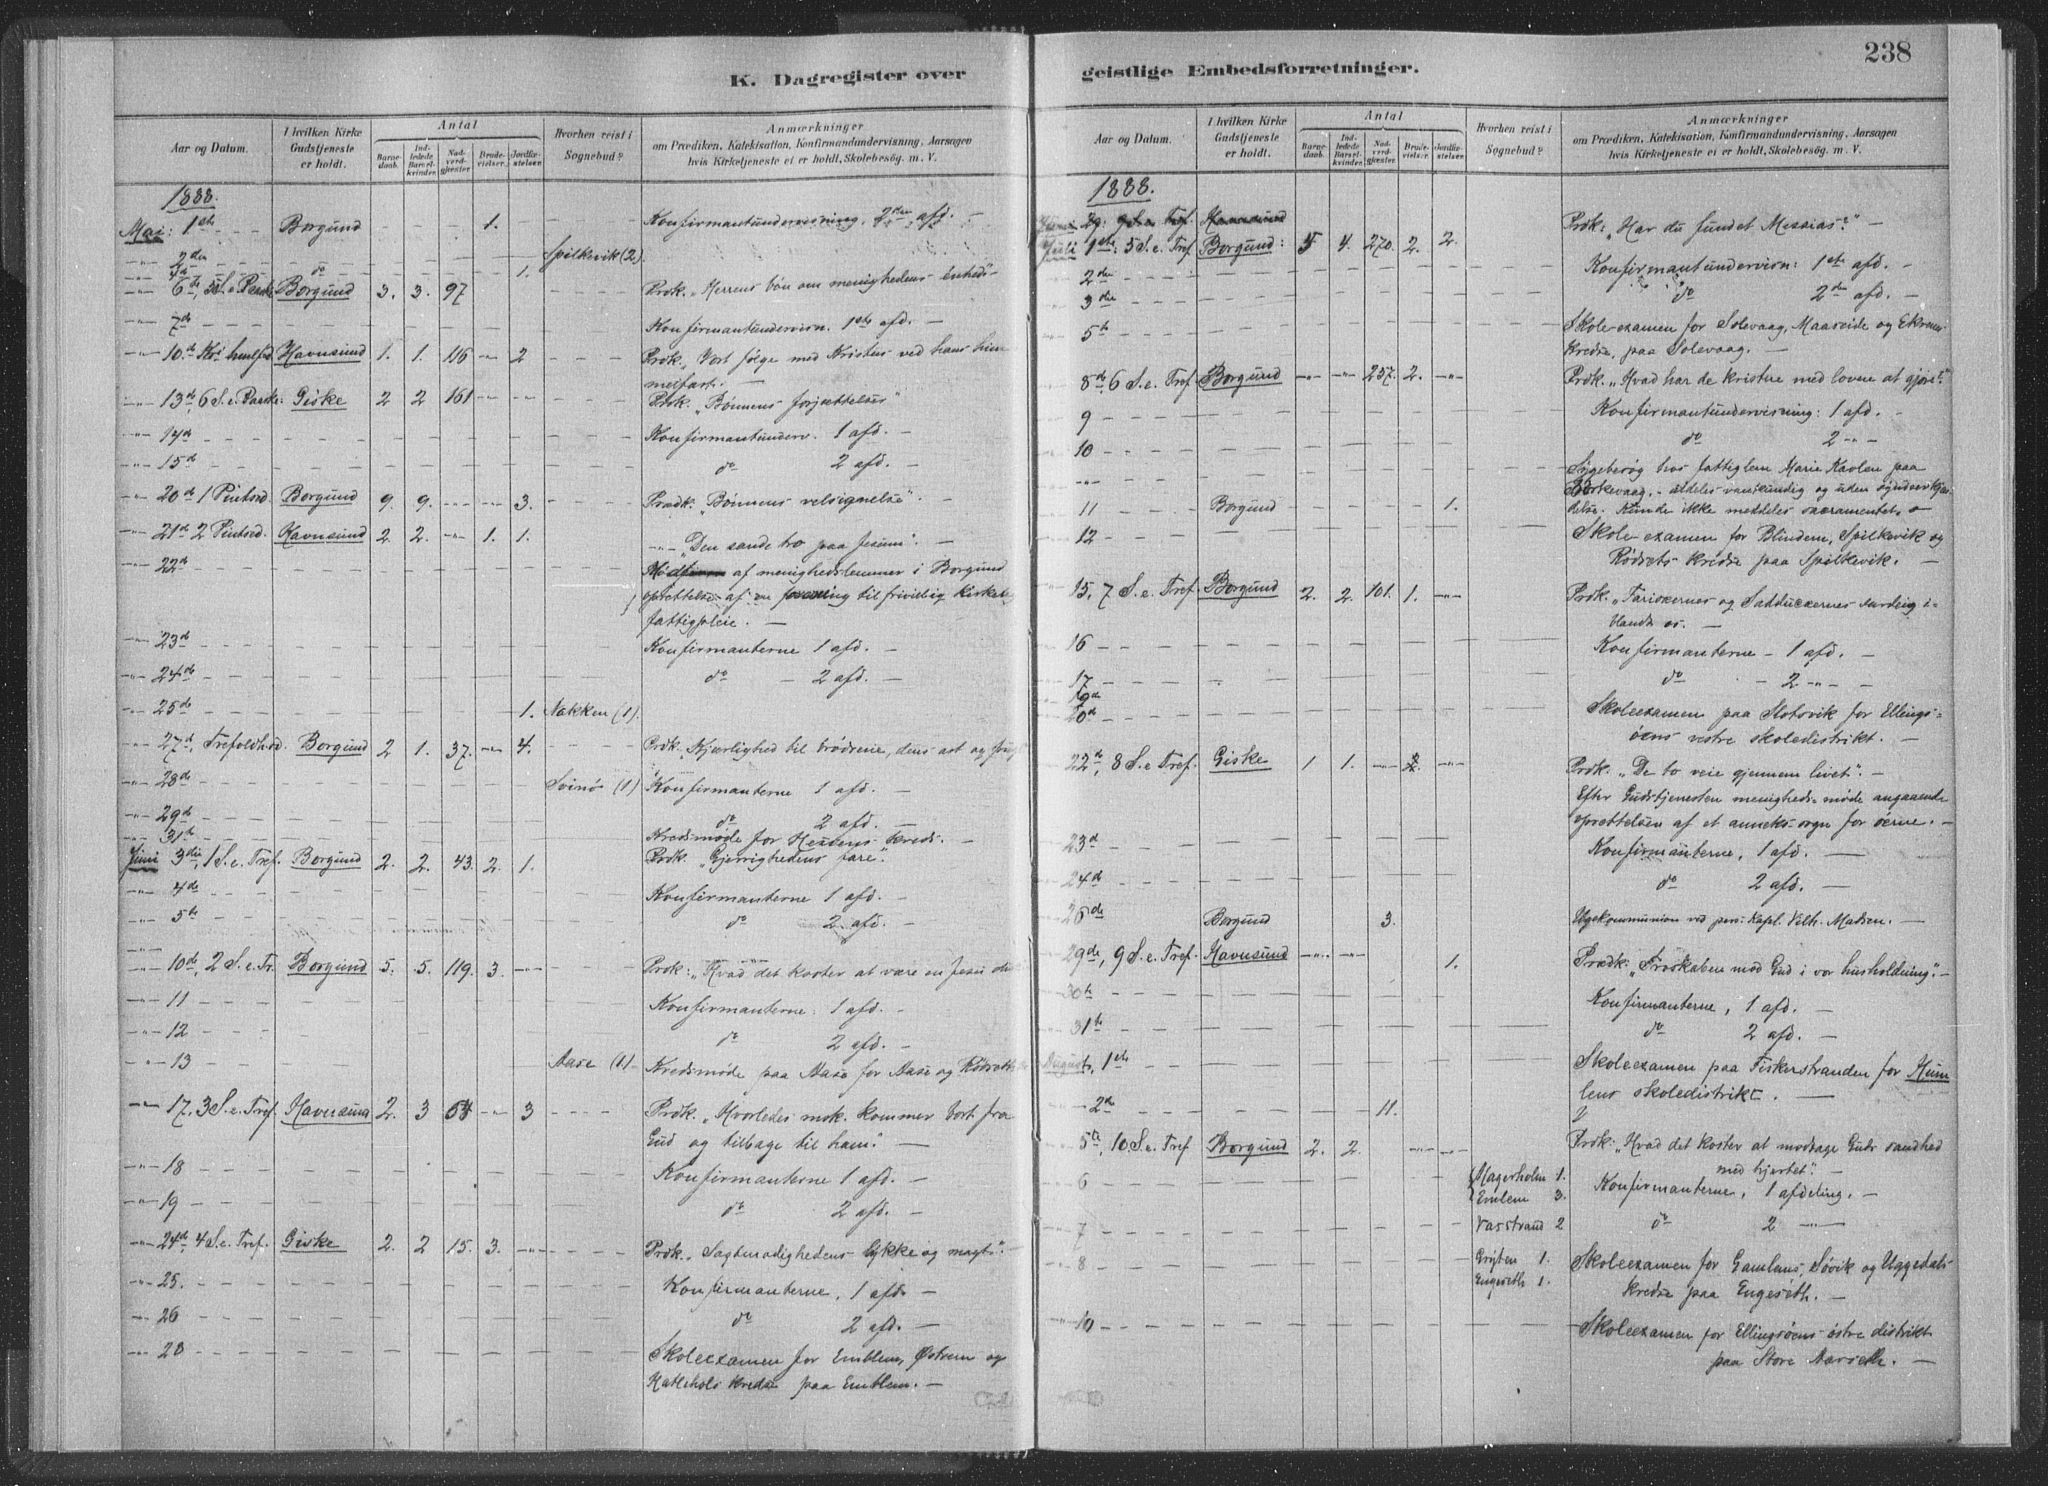 K. Dagregister over
Aar og Datum.
I hvilken Kirke Gudstjeneste er holdt.
Antal
Barnedaab.
Indledede Barselkvinder.
Nadverdgjester
Brudevielser.
Jordfæstelser
Hvorhen reist i Sognebud?
Anmærkninger
om Prædiken, Katekisation, Konfirmandundervisning, Aarsagen
hvis Kirketjeneste ei er holdt, Skolebesøg. m. V.
1888.
Mai: 1ste Borgund 1. Konfirmantundervisning, 2den afd. -
2den Spilkevik (2).
4de do 1.
6te, 5 S. e. Paaske Borgund 3. 3. 97 Præk. "Herrens bøn om menighedens enhed"-
7de Konfirmantundervisn. 1ste afd. -
10de Kri himlfd. Havnsund 1. 1. 116 -"- 2 Præk. "Vort følge med Kristus ved hans him
melfart. -
13de, 6 S. e. Paaske: Giske 2 2 161 Præk. "Bønnens forjættelser"
14de Konfirmantunderv. 1 afd. -
15de do 2 afd. -
20de 1 Pintsed. Borgund 9. 9. -"- 3. Prædk. "Bønnens velsignelse". -
21de 2 Pintsed. Havnsund 2. 2. -"- 1. 1. -"- "Den sande tro paa Jesum". -
22de af menighedslemmer i Borgund
oprettelse af en forening til frivillig kirkelig
fattigpleie. -
23de Konfirmanterne 1 afd. -
24de do - 2 afd. -
25de 1. Nakken (1).
27de, Trefoldhd. Borgund 2 1. 37. -"- 4. Præk. "Kjærlighed til brødrene, dens art og frugt
28de Svinø (1) Konfirmanterne 1 afd. -
29de do 2 afd. -
31te Kredsmøde for Hessens kreds. -
Juni 3die, 1 S. e. Tref. Borgund 2. 2. 43. 2. 1. Præk. "Gjerrighedens fare".
4de Konfirmanterne 1 afd. -
5te do 2 afd. -
10de, 2 S. e. Tr. Borgund 5. 5. 119. 3. -"- Præk: "Hvad det koster at være en Jesu
11 Konfirmanterne: 1 afd. -
12 do 2 afd. -
13 Aase (1) - Kredsmøde paa Aase for Aase og Rødseth
17. 3 S. e. Tref. Havnsund 2. 3 -"- 3 Præk. "Hvorledes kommer bort fra
Gud og tilbage til ham". -
18 Konfirmanterne 1 afd. -
19 do 2 afd. -
24de 4 S. e. Tref. Giske 2. 2 15. 3. -"- Præk. "Sagtmodighedens lykke og magt". -
25. Konfirmanterne, 1 afd. -
26 do 2 afd. -
28 Skoleexamen for Emblem, og
kredse paa Emblem. -
238
geistlige Embedsforretninger.
Aar og Datum.
I hvilken Kirke Gudstjeneste er holdt.
Antal
Barnedaab.
Indledede Barselkvinder.
Nadverdgjester
Brudevielser.
Jordfæstelser
Hvorhen reist i Sognebud?
Anmærkninger
om Prædiken, Katekisation, Konfirmandundervisning, Aarsagen
hvis Kirketjeneste ei er holdt, Skolebesøg. m. V.
1888.
Præk: "Har du fundet Messias?" -
Juli 1ste: 5 S. e. Tref Borgund: 4. 270. 2. 2.
2den Konfirmantundervisn: 1ste afd. -
3die do 2den afd. -
5te Skole-examen for Solevaag, Maaseide og
kredse, paa Solevaag. -
8de 6 S. e. Tref. Borgund -"- -"- 257. 2. -"- Præk. "Hvad har de kristne med loven at gjøre?"
9 Konfirmantundervisning: 1 afd. -
10 do 2 -"-
Sygebesøg hos fattiglem Marie paa
- aldeles vankundig og uden
11 Borgund 1. Kunde ikke meddeles sacramentet. -
12 Skole-examen for Blindem, Spilkevik og
Rødsets kredse paa Spilkevik. -
15, 7 S. e. Tref. Borgund 2. 2. 101. 1. -"- Præk. "Fariseernes og Sadducæernes surdeig i-
blandt os. -
16 Konfirmanterne - 1 afd. -
17 do - 2 -"-
19de
20de Skoleexamen paa Stokvik for Ellings-
øens vestre skoledistrikt. -
22de, 8 S. e Tref. Giske 1 1. -"- -"- Præk. "De to veie gjennem livet". -
Efter Gudstjenesten menigheds-møde angaaende
oprettelsen af et anneks-sogn for øerne. -
23de Konfirmanterne, 1 afd. -
24de do 2 afd. -
26de Borgund 3. Ugekommunion ved pers: Kapl. Vilh. Madsen. -
29de, 9 S. e. Tref. Havnsund -"- -"- 1. Prædk: "Troskaben mod Gud i vor husholdning". -
30te Konfirmanterne, 1 afd. -
31te do 2 afd. -
August, 1ste Skoleexamen paa Fiskerstranden for Hum
lens skoledistrikt. -
2de 11.
5te, 10. S. e. Tref. Borgund 2. 2. -"- -"- Præk: "Hvad det koster at modtage Guds sandhed
med hjertet". -
6 Magerholm 1. Konfirmanterne, 1 afdeling. -
Emlem 3.
7 Vasstrand 2 do 2 -"-
8 Grytten 1. Skoleexamen for Gamlems, Søvik og Uggedals
Engeseth 1. kredse paa Engeseth. -
10 Skoleexamen for Ellingsøens østre distrikt
paa Store Aarseth. -